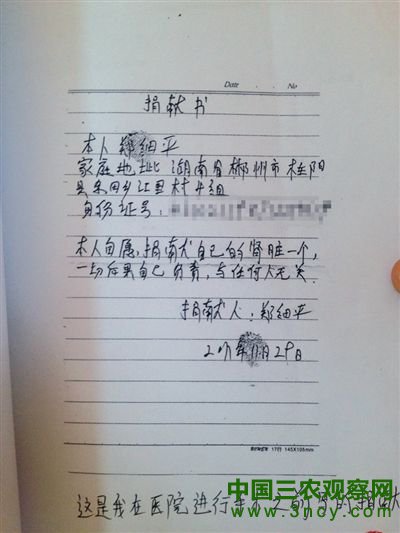 Date No
捐献书
本人郑细平
家庭地址 湖南省郴州市桂阳
县东回乡江里村 4组
身份证号:
本人自属,捐献自己的肾脏一个,
一切后果自己负责,与任何人无关.
捐献人:郑细平
月29日
17行 145X105mm
中国三农观察网
www.3ncy.com
这是我在医院进行手术之前写的捐献